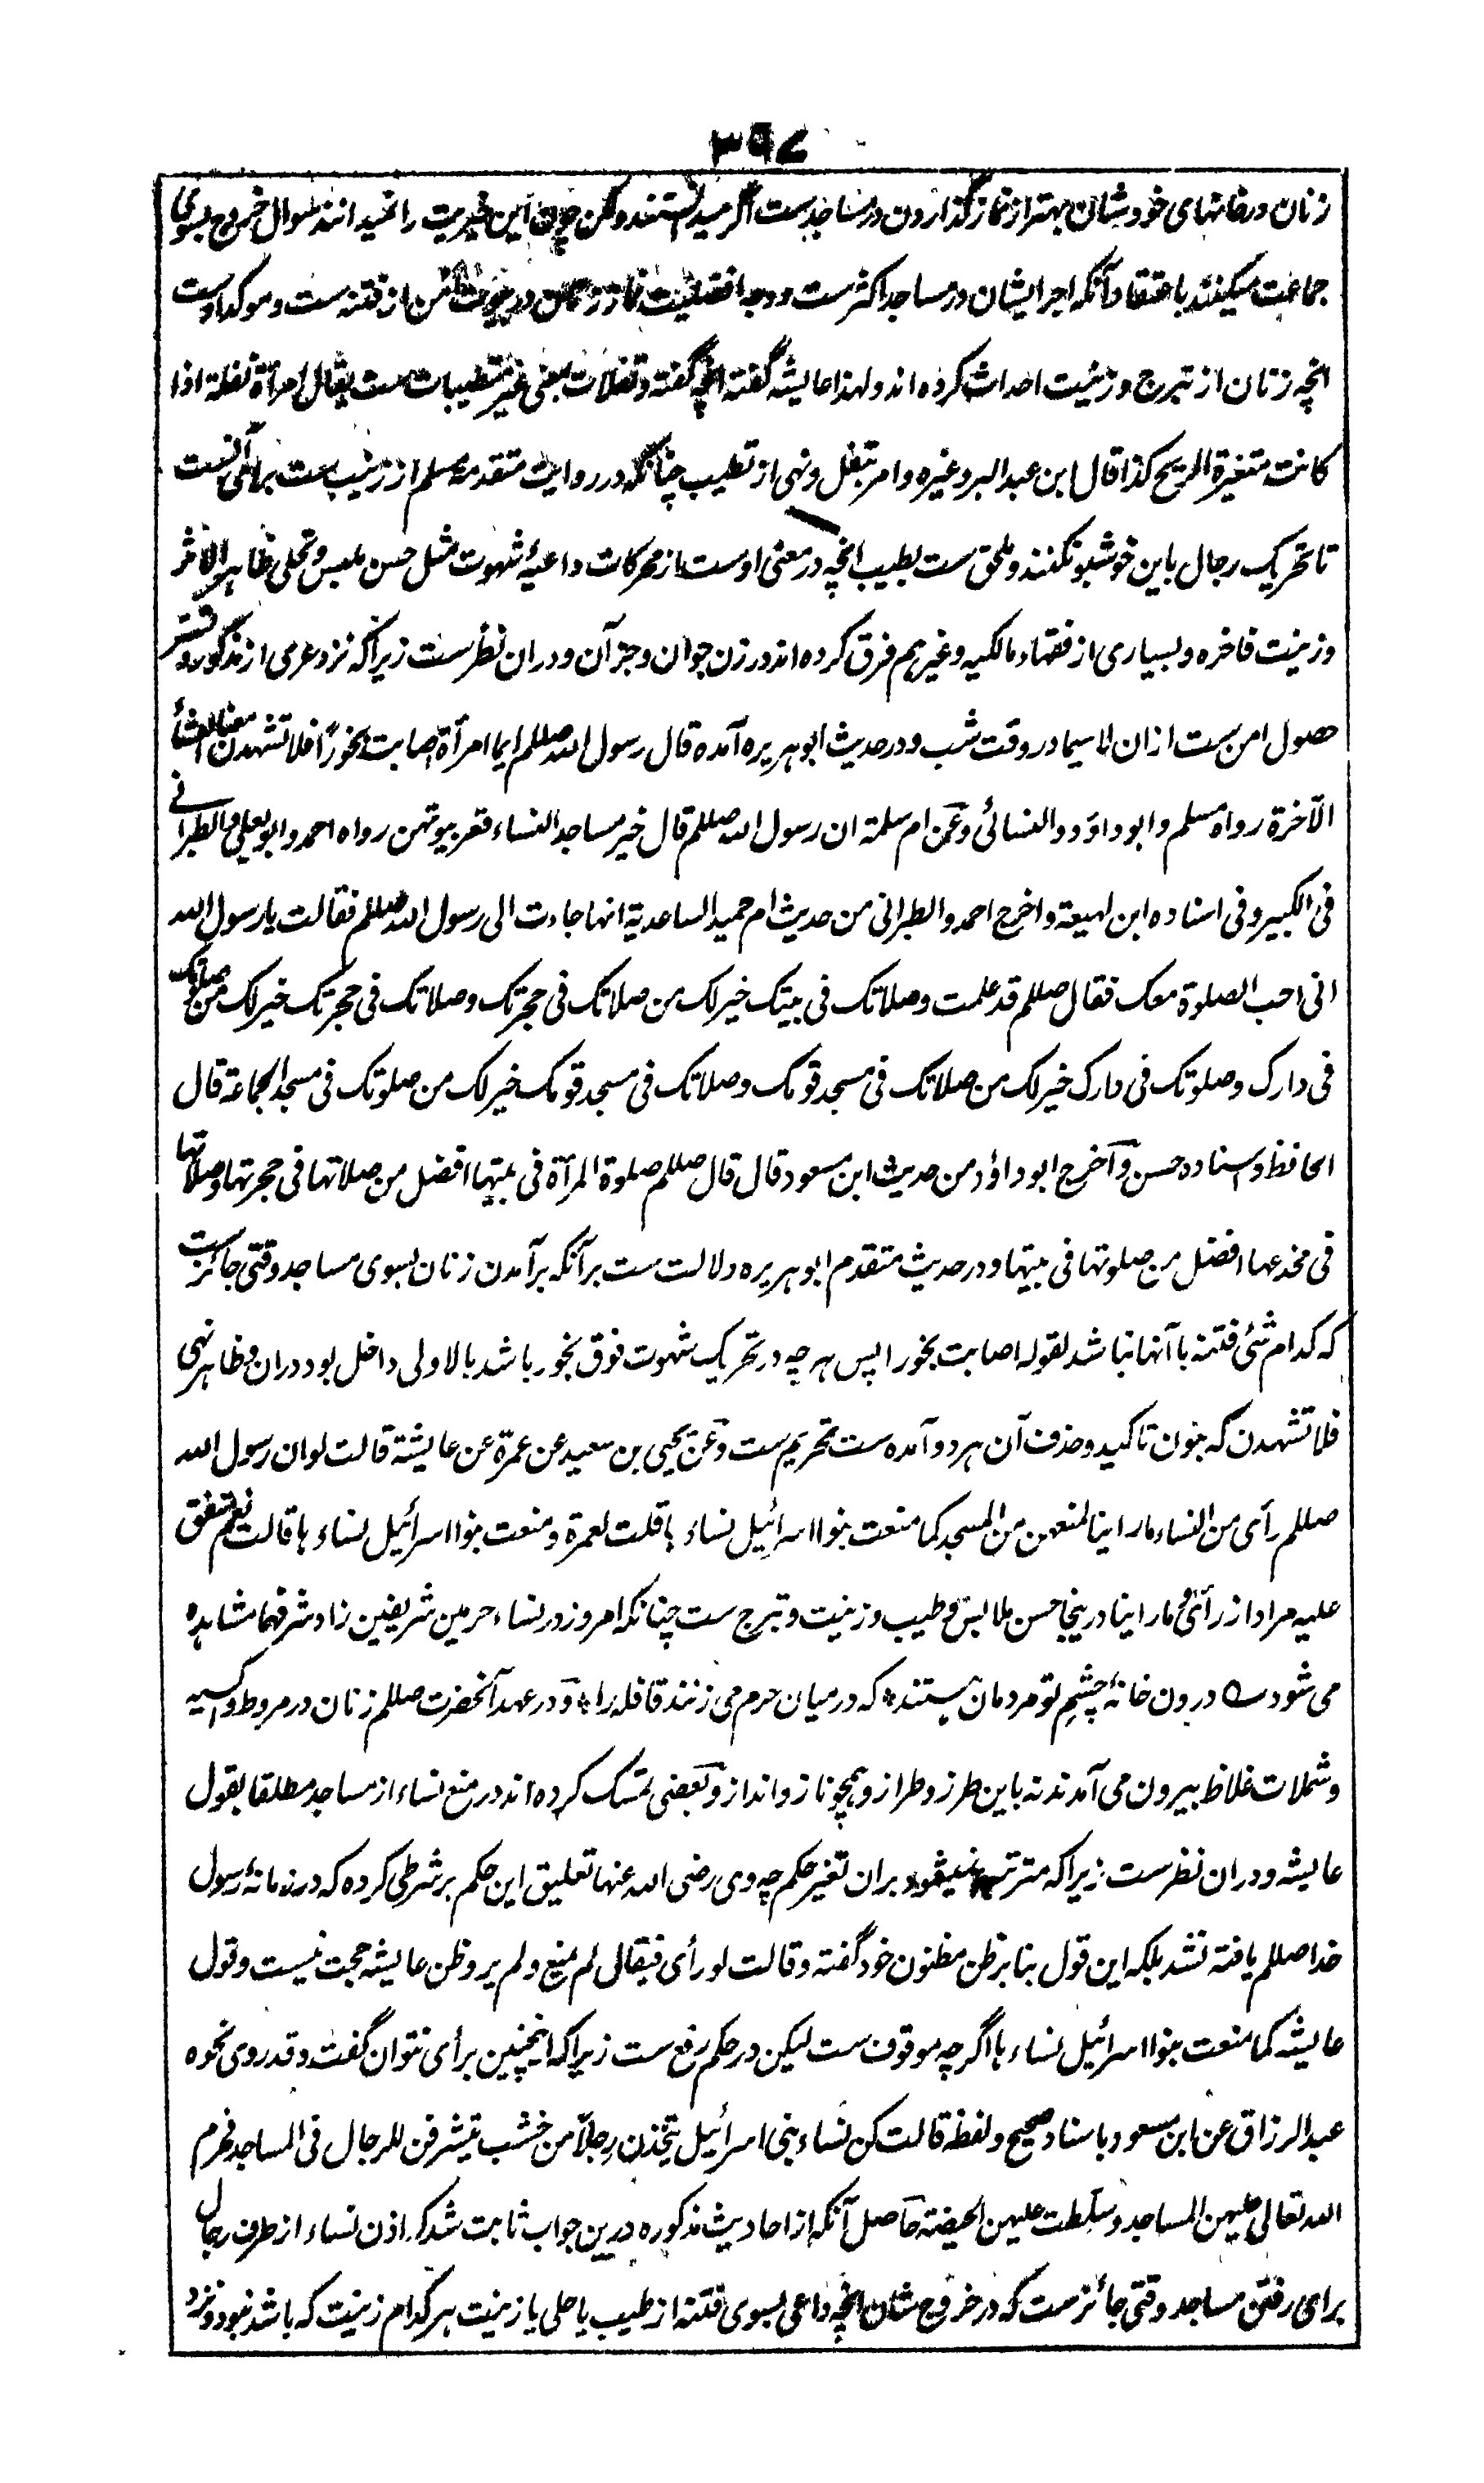 ٣٩٧
زنان در خانهای خود شان بهتر از نماز گذارون در مساجد ست اگر میدانستند ولکن چون این خیریت را نمیدانند سوال خروج بسوی
جماعت میکنند باعتقاد آنکه اجر ایشان در مساجد اکثر ست و وجه افضلیت نماز زنان در بیوت امن از فتنه ست و موکد اوست
انچه زنان از تبرج و زینت احداث کرده اند و لهذا عایشه گفته انچه گفته و تفلات بمعنی غیر متطیبات ست یقال امرأة تفلة اذا
کانت متغیرة الریح کذا قال ابن عبد البر و غیره و امر بتفل و نهی از تطیب چنانکه در روایت متقدمه مسلم از زینب ست برای آنست
تا تحریک رجال باین خوشبو نکنند و ملحق ست بطیب انچه در معنی اوست از محرکات داعیهٔ شهوت مثل حسن ملبس و تحلی ظاهر الاثر
و زینت فاخره و بسیاری از فقهاء مالکیه و غیرهم فرق کرده اند در زن جوان و جز آن و دران نظرست زیراکه نزد عرمی از مذکور و تستر
حصول امن ست ازان لا سیما در وقت شب و در حدیث ابو هریره آمده قال رسول الله صللم ایما امرأة اصابت بخورا فلا تشهدن معنا العشأ
الآخرة رواه مسلم و ابو داوٗد و النسائی وعن ام سلمة ان رسول الله صللم قال خیر مساجد النساء قعر بیوتهن رواه احمد و ابو یعلی والطبرانے
فی الکبیر و فی اسناده ابن لهیعة و اخرج احمد و الطبرانی من حدیث ام حمید الساعدیة انها جاءت الی رسول الله صللم فقالت یا رسول الله
انی احب الصلوة معک فقال صللم قد علمت وصلاتک فی بیتک خیر لک من صلاتک فی حجرتک وصلاتک فی حجرتک خیر لک من صلوتک
فی دارک وصلوتک فی دارک خیر لک من صلاتک فی مسجد قومک وصلاتک فی مسجد قومک خیر لک من صلوتک فی مسجد الجماعة قال
الحافظ و اسناده حسن وآخرج ابو داؤد من حدیث ابن مسعود قال قال صللم صلوة المرأة فی بیتها افضل من صلاتها فی حجرتها وصلاتها
فی مخدعها افضل من صلوتها فی بیتها و در حدیث متقدم ابو هریره دلالت ست بر آنکه برآمدن زنان بسوی مساجد وقتی جائز ست
که کدام شئ فتنه با آنها نباشد لقوله اصابت بخورا پس هرچه در تحریک شهوت فوق بخور باشد بالاولی داخل بود دران و ظاهر نهی
فلا تشهدن که بنون تاکید و حذف آن هر دو آمده ست تحریم ست وعن یحیی بن سعید عن عمرة عن عایشة قالت لو ان رسول الله
صللم رأی من النساء ما راینا لمنعهن من المسجد کما منعت بنوا اسرائیل نساء ها قلت لعمرة و منعت بنوا اسرائیل نساء ها قالت نعم متفق
علیه مراد از رأی ما راینا درینجا حسن ملابس و طیب و زینت و تبرج ست چنانکه امروز در نساء حرمین شریفین زاد شرفهما مشاهده
می شود ے درون خانهٔ چشم تو مردمان هستند * که در میان حرم می زنند قافله را * ودر عهد آنحضرت صللم زنان در مروط و اکسیه
و شملات غلاظ بیرون می آمدند نه باین طرز و طراز و همچو ناز و انداز وبعضی تمسک کرده اند در منع نساء از مساجد مطلقا بقول
عایشه و دران نظرست زیراکه مترتب نمیشود بران تغیر حکم چه وی رضی الله عنها تعلیق این حکم بر شرطی کرده که در زمانهٔ رسول
خدا صللم یافته نشد بلکه این قول بنا بر ظن مظنون خود گفته و قالت لو رأی فیقال لم یمنع و لم یر و ظن عایشه حجت نیست و قول
عایشه کما منعت بنوا اسرائیل نساء ها اگرچه موقوف ست لیکن در حکم رفع ست زیراکه اینچنین برأی نتوان گفت و قد روی نحوه
عبد الرزاق عن ابن مسعود باسناد صحیح و لفظه قالت کن نساء بنی اسرائیل یتخذن رجلا من خشب یتشرفن للرجال فی المساجد فحرم
الله تعالی علیهن المساجد وسلطت علیهن الحیضة حاصل آنکه از احادیث مذکوره درین جواب ثابت شد که اذن نساء از طرف رجال
برای رفتن مساجد وقتی جائز ست که در خروج شان انچه داعی بسوی فتنه از طیب یا حلی یا زینت هر کدام زینت که باشد نبود و نزد